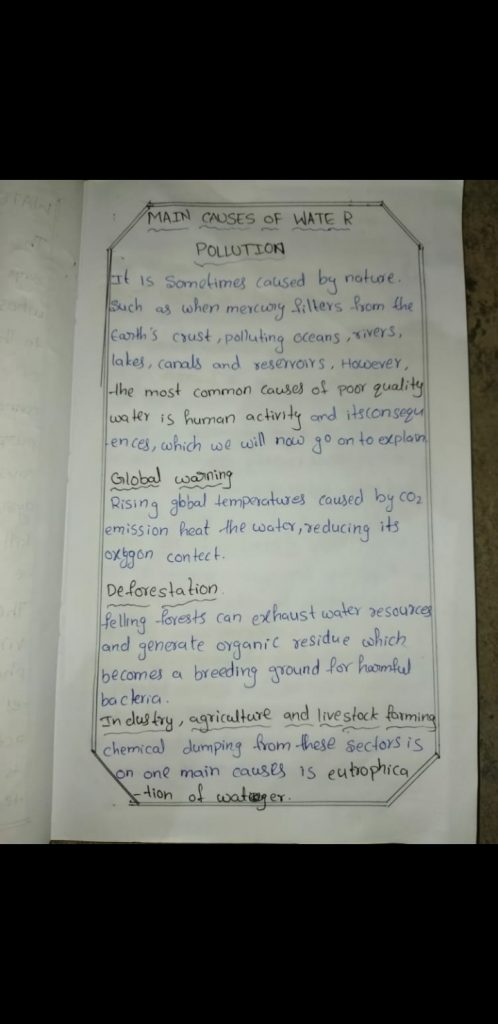 MAIN CAUSES OF WATER
POLLUTION
It is Sometimes caused by nature.
Such as when mercury filters from the
Earth's crust, polluting oceans, rivers,
lakes, canals and reservoirs, However,
the most common causes of poor quality
water is human activity and itsconsequ
ences, which we will now go on to explain
Global warning
Rising global temperatures caused by CO2
emission heat the water, reducing its
oxygon contect.
Deforestation
felling forests can exhaust water resources
and generate organic residue which
becomes a breeding ground for harmful
bacteria.
Industry, agriculture and livestock farming
chemical dumping from these sectors is
on one main causes is eutrophica
-tion of